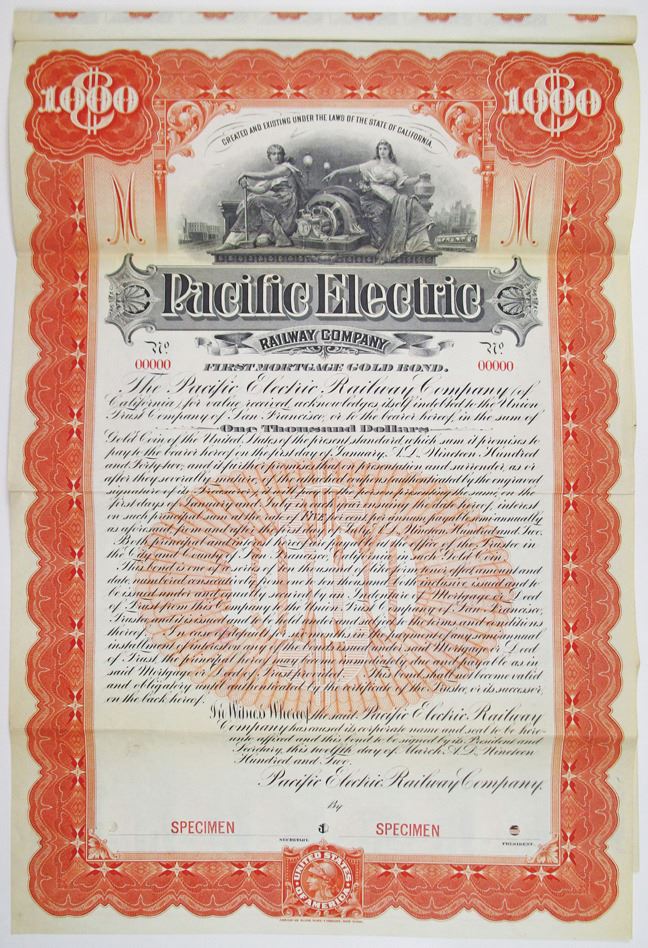 1000
1000
CREATED AND EXISTING UNDER THE LAWS OF THE STATE OF CALIFORNIA.
M
M
Pacific Electric
RAILWAY COMPANY
No. No.
00000 00000
FIRST MORTGAGE GOLD BOND.
The Pacific Electric Railway Company, of
California, for value received, acknowledges itself indebted to the Union
Trust Company of San Francisco, or to the bearer hereof, in the sum of
One Thousand Dollars
Gold Coin of the United States of the present standard, which sum it promises to
pay to the bearer hereof on the first day of January, A.D. Nineteen Hundred
and Forty-two; and it further promises that on presentation and surrender, as or
after they severally mature, of the attached coupons authenticated by the engraved
signature of its Treasurer, it will pay to the person presenting the same, on the
first days of January and July in each year ensuing the date hereof, interest
on such principal sum at the rate of FIVE per cent. per annum, payable semi-annually
as aforesaid, from and after the first day of July, A.D. Nineteen Hundred and Two.
Both principal and interest hereof are payable at the office of the Trustee in
the City and County of San Francisco, California, in such Gold Coin.
This bond is one of a series of ten thousand bonds of like tenor, effect, amount and
date, numbered consecutively from one to ten thousand, both inclusive, issued and to
be issued under and equally secured by an Indenture of Mortgage or Deed
of Trust from this Company to the Union Trust Company of San Francisco,
Trustee, and it is issued and held subject to all the terms and conditions
thereof. In case of default in the payment of any semi-annual
installment of interest on any of the bonds issued under said Mortgage or Deed
of Trust, the principal hereof may become immediately due and payable as in
said Mortgage or Deed of Trust provided. This bond shall only become valid
and obligatory when authenticated by the certificate of the Trustee, or its successor,
on the back hereof.
1000
In Witness Whereof, the said Pacific Electric Railway
Company has caused its corporate name and seal to be here-
unto affixed and this bond to be signed by its President and
Secretary, this twelfth day of March, A.D. Nineteen
Hundred and Two.
Pacific Electric Railway Company,
By
SPECIMEN SPECIMEN
SECRETARY. PRESIDENT.
UNITED STATES
OF AMERICA